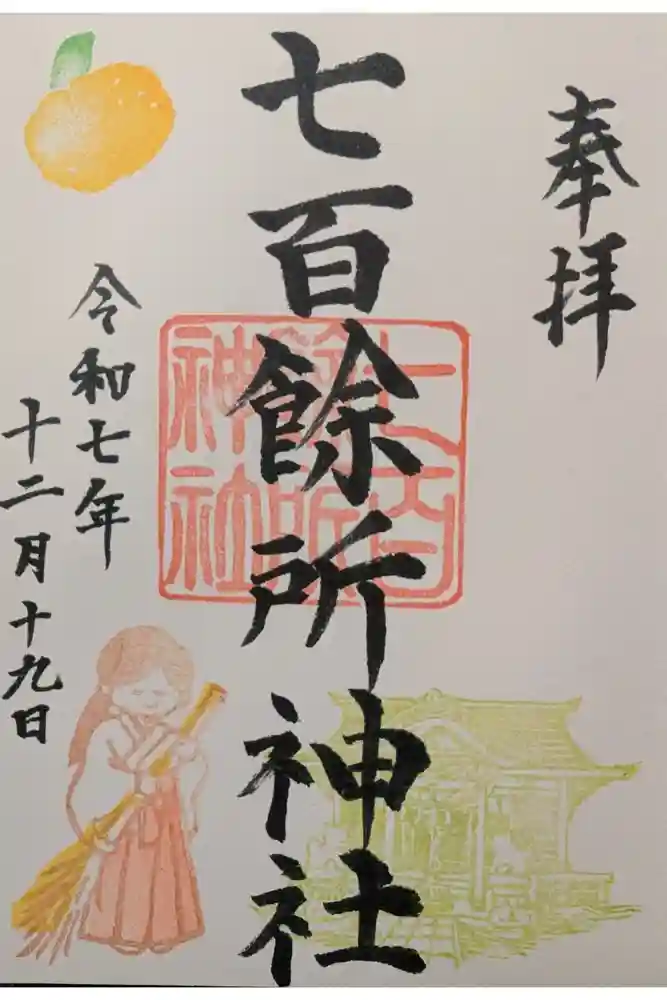 奉拝
七百餘所神社
七百
餘所
神社
令和七年
十二月十九日